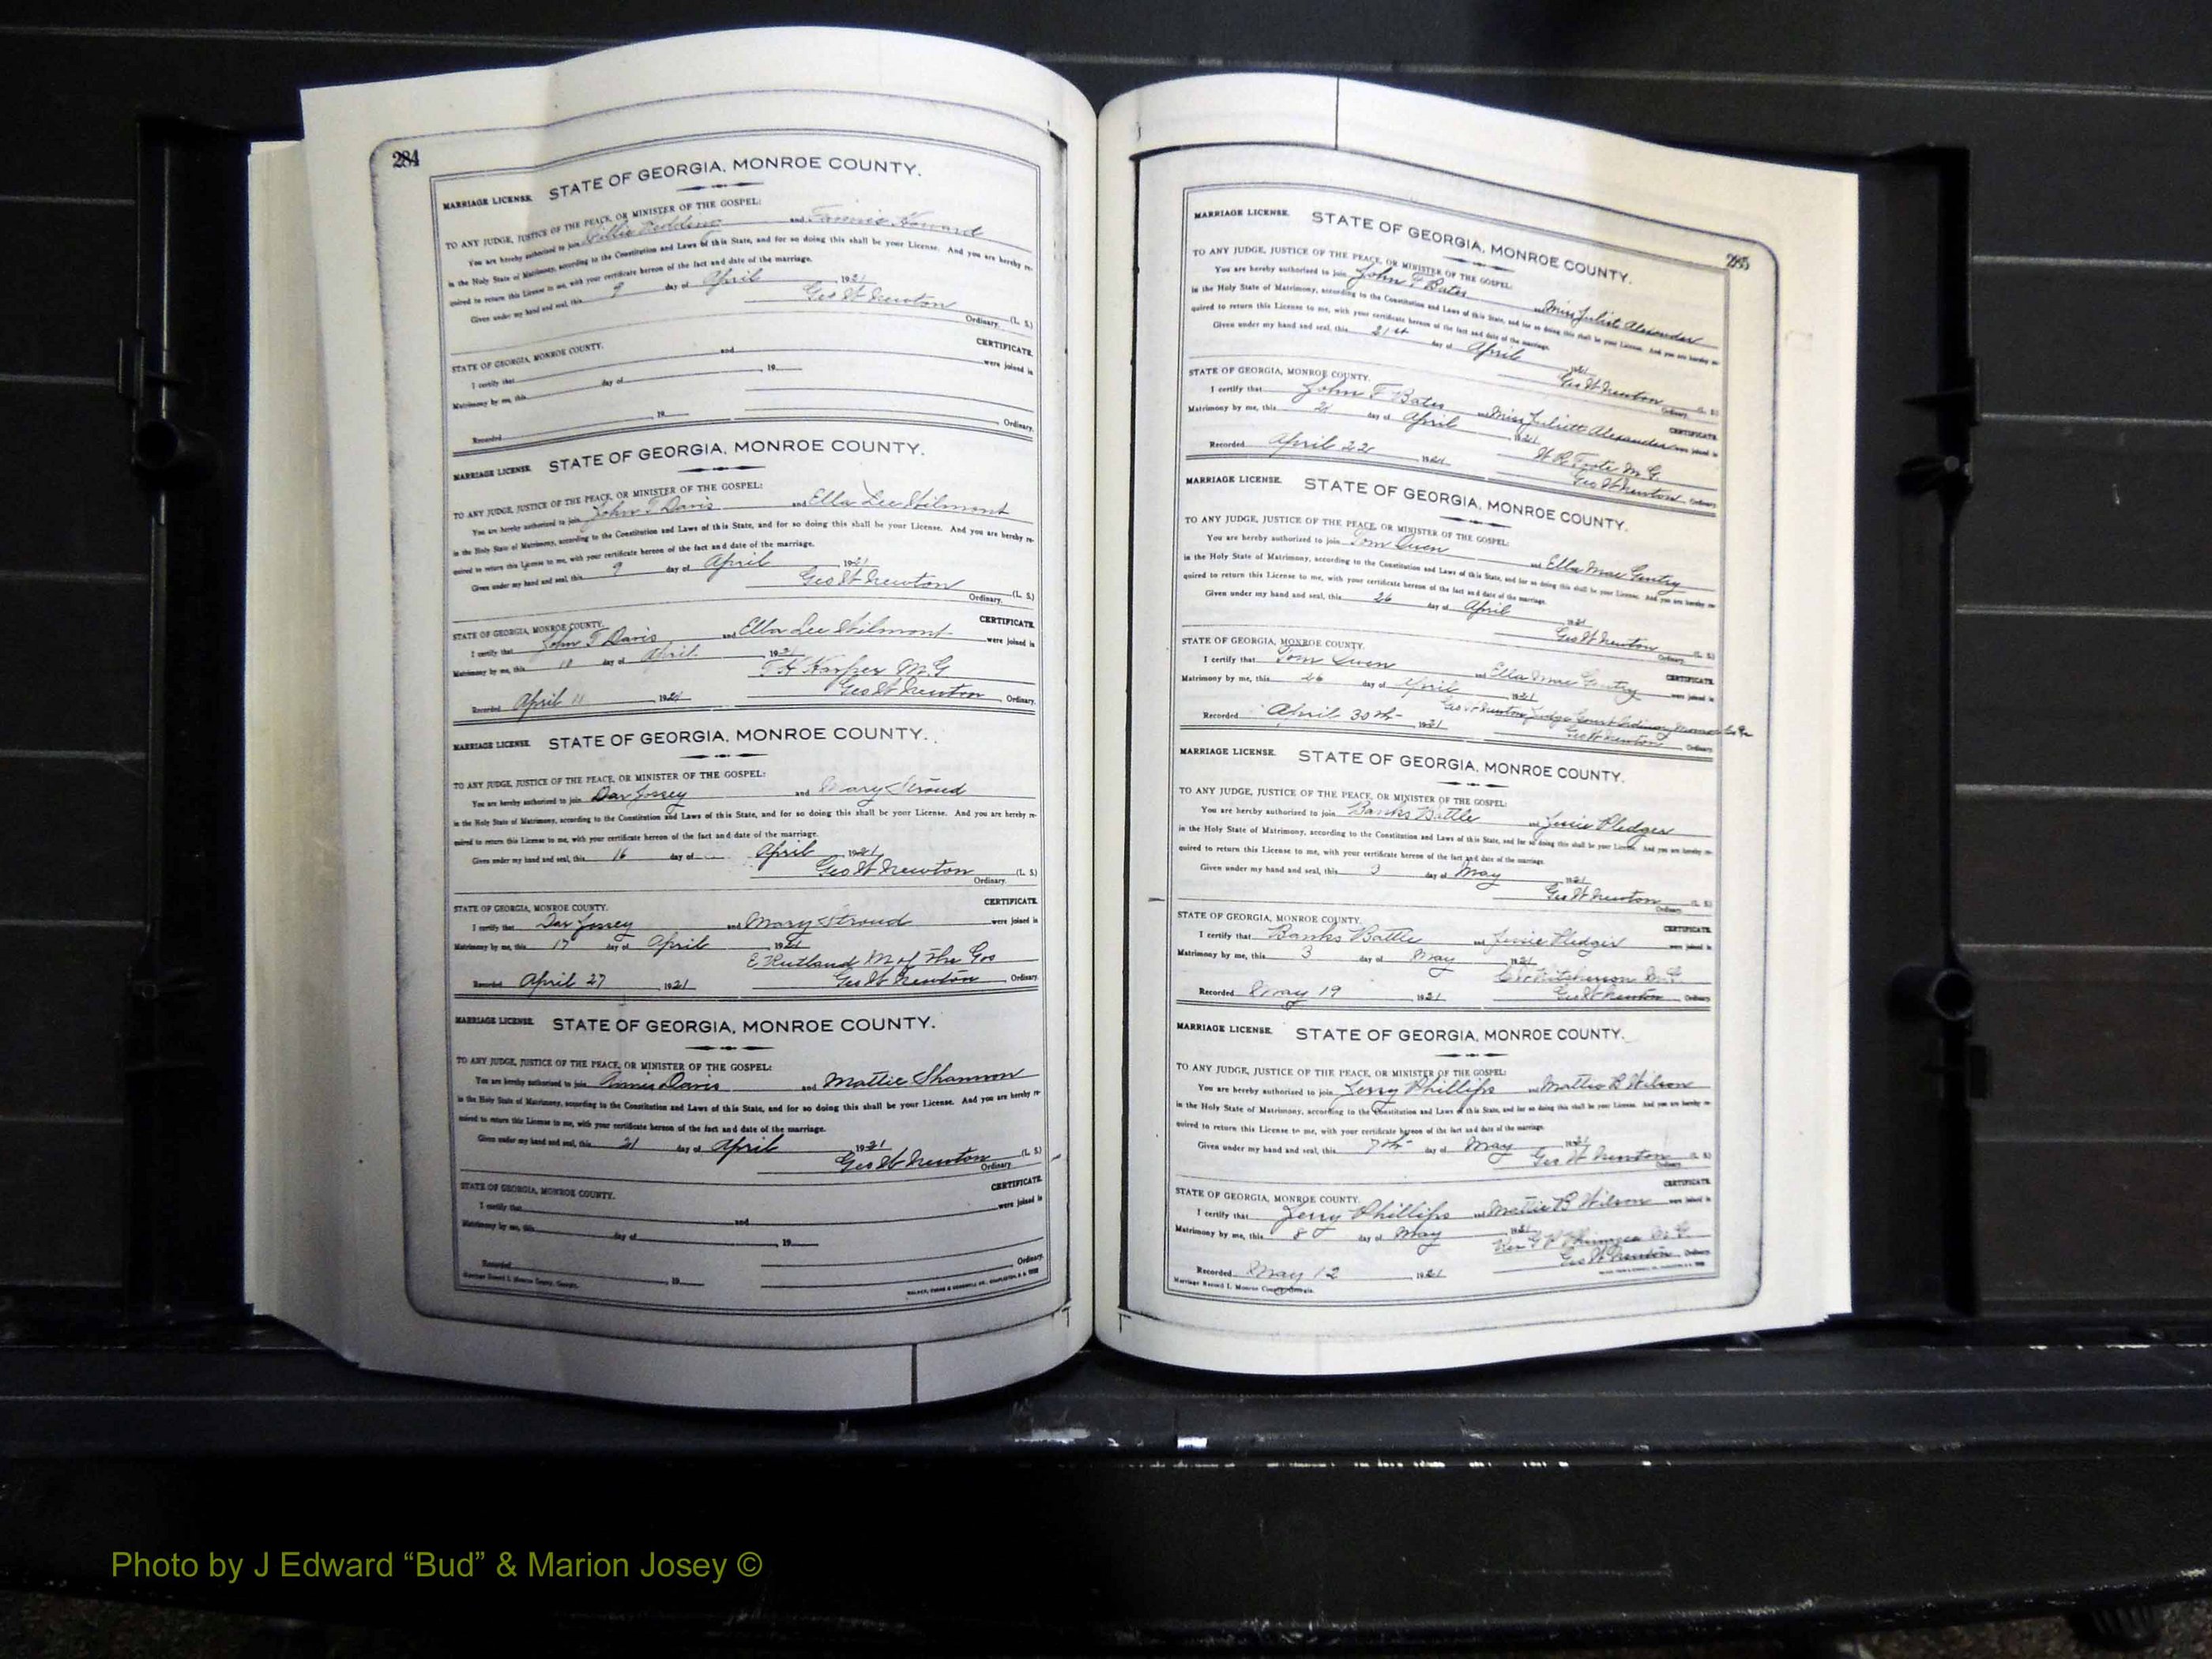 284
MARRIAGE LICENSE. STATE OF GEORGIA, MONROE COUNTY.
TO ANY JUDGE, JUSTICE OF THE PEACE, OR MINISTER OF THE GOSPEL:
You are hereby authorized to join Willie Redding and Fannie Howard
in the Holy State of Matrimony, according to the Constitution and Laws of this State, and for so doing this shall be your License. And you are hereby re-
quired to return this License to me, with your certificate hereon of the fact and date of the marriage.
Given under my hand and seal, this 9 day of April 1921
Geo W Newton (L. S.)
Ordinary.
STATE OF GEORGIA, MONROE COUNTY. CERTIFICATE.
I certify that and were joined in
Matrimony by me, this day of , 19
Recorded , 19 Ordinary.
MARRIAGE LICENSE. STATE OF GEORGIA, MONROE COUNTY.
TO ANY JUDGE, JUSTICE OF THE PEACE, OR MINISTER OF THE GOSPEL:
You are hereby authorized to join John T Davis and Ella Lee
in the Holy State of Matrimony, according to the Constitution and Laws of this State, and for so doing this shall be your License. And you are hereby re-
quired to return this License to me, with your certificate hereon of the fact and date of the marriage.
Given under my hand and seal, this 9 day of April 1921
Geo W Newton (L. S.)
Ordinary.
STATE OF GEORGIA, MONROE COUNTY. CERTIFICATE.
I certify that John T Davis and Ella Lee were joined in
Matrimony by me, this 10 day of April , 1921
T H Harper M.G
Recorded April 11 1921 Geo W Newton Ordinary.
MARRIAGE LICENSE. STATE OF GEORGIA, MONROE COUNTY.
TO ANY JUDGE, JUSTICE OF THE PEACE, OR MINISTER OF THE GOSPEL:
You are hereby authorized to join Dax Jossey and Mary Stroud
in the Holy State of Matrimony, according to the Constitution and Laws of this State, and for so doing this shall be your License. And you are hereby re-
quired to return this License to me, with your certificate hereon of the fact and date of the marriage.
Given under my hand and seal, this 16 day of April 1921
Geo W Newton (L. S.)
Ordinary.
STATE OF GEORGIA, MONROE COUNTY. CERTIFICATE.
I certify that Dax Jossey and Mary Stroud were joined in
Matrimony by me, this 17 day of April , 1921
E Rutland M of The Gos
Recorded April 27 , 1921 Geo W Newton Ordinary.
MARRIAGE LICENSE. STATE OF GEORGIA, MONROE COUNTY.
TO ANY JUDGE, JUSTICE OF THE PEACE, OR MINISTER OF THE GOSPEL:
You are hereby authorized to join Davis and Mattie Shannon
in the Holy State of Matrimony, according to the Constitution and Laws of this State, and for so doing this shall be your License. And you are hereby re-
quired to return this License to me, with your certificate hereon of the fact and date of the marriage.
Given under my hand and seal, this 21 day of April 1921
Geo W Newton (L. S.)
Ordinary
STATE OF GEORGIA, MONROE COUNTY. CERTIFICATE.
I certify that and were joined in
Matrimony by me, this day of , 19
Recorded , 19 Ordinary.
Marriage Record I, Monroe County, Georgia.
285
MARRIAGE LICENSE. STATE OF GEORGIA, MONROE COUNTY.
TO ANY JUDGE, JUSTICE OF THE PEACE, OR MINISTER OF THE GOSPEL:
You are hereby authorized to join John F Bates and Miss Juliet Alexander
in the Holy State of Matrimony, according to the Constitution and Laws of this State, and for so doing this shall be your License. And you are hereby re-
quired to return this License to me, with your certificate hereon of the fact and date of the marriage.
Given under my hand and seal, this 21st day of April 1921
Geo W Newton (L. S.)
Ordinary.
STATE OF GEORGIA, MONROE COUNTY. CERTIFICATE.
I certify that John F Bates and Miss Juliett Alexander were joined in
Matrimony by me, this 21 day of April , 1921
W R Foote M.G.
Recorded April 22 1921 Geo W Newton Ordinary
MARRIAGE LICENSE. STATE OF GEORGIA, MONROE COUNTY.
TO ANY JUDGE, JUSTICE OF THE PEACE, OR MINISTER OF THE GOSPEL:
You are hereby authorized to join Tom Owen and Ella Mae Gentry
in the Holy State of Matrimony, according to the Constitution and Laws of this State, and for so doing this shall be your License. And you are hereby re-
quired to return this License to me, with your certificate hereon of the fact and date of the marriage.
Given under my hand and seal, this 26 day of April 1921
Geo W Newton (L. S.)
Ordinary.
STATE OF GEORGIA, MONROE COUNTY. CERTIFICATE.
I certify that Tom Owen and Ella Mae Gentry were joined in
Matrimony by me, this 26 day of April , 1921
Geo W Newton Judge Court Ordinary Monroe Co Ga
Recorded April 30th , 1921 Geo W Newton Ordinary
MARRIAGE LICENSE. STATE OF GEORGIA, MONROE COUNTY.
TO ANY JUDGE, JUSTICE OF THE PEACE, OR MINISTER OF THE GOSPEL:
You are hereby authorized to join Banks Battle and Jessie Pledger
in the Holy State of Matrimony, according to the Constitution and Laws of this State, and for so doing this shall be your License. And you are hereby re-
quired to return this License to me, with your certificate hereon of the fact and date of the marriage.
Given under my hand and seal, this 3 day of May 1921
Geo W Newton (L. S.)
Ordinary.
STATE OF GEORGIA, MONROE COUNTY. CERTIFICATE.
I certify that Banks Battle and Jessie Pledger were joined in
Matrimony by me, this 3 day of May , 1921
M.G.
Recorded May 19 , 1921 Geo W Newton Ordinary
MARRIAGE LICENSE. STATE OF GEORGIA, MONROE COUNTY.
TO ANY JUDGE, JUSTICE OF THE PEACE, OR MINISTER OF THE GOSPEL:
You are hereby authorized to join Jerry Phillips and Mattie B Wilson
in the Holy State of Matrimony, according to the Constitution and Laws of this State, and for so doing this shall be your License. And you are hereby re-
quired to return this License to me, with your certificate hereon of the fact and date of the marriage.
Given under my hand and seal, this 7th day of May 1921
Geo W Newton (L. S.)
Ordinary
STATE OF GEORGIA, MONROE COUNTY. CERTIFICATE.
I certify that Jerry Phillips and Mattie B Wilson were joined in
Matrimony by me, this 8 day of May 1921
Rev M.G.
Recorded May 12 , 1921 Geo W Newton Ordinary
Marriage Record I, Monroe County, Georgia.
Photo by J Edward “Bud” & Marion Josey ©